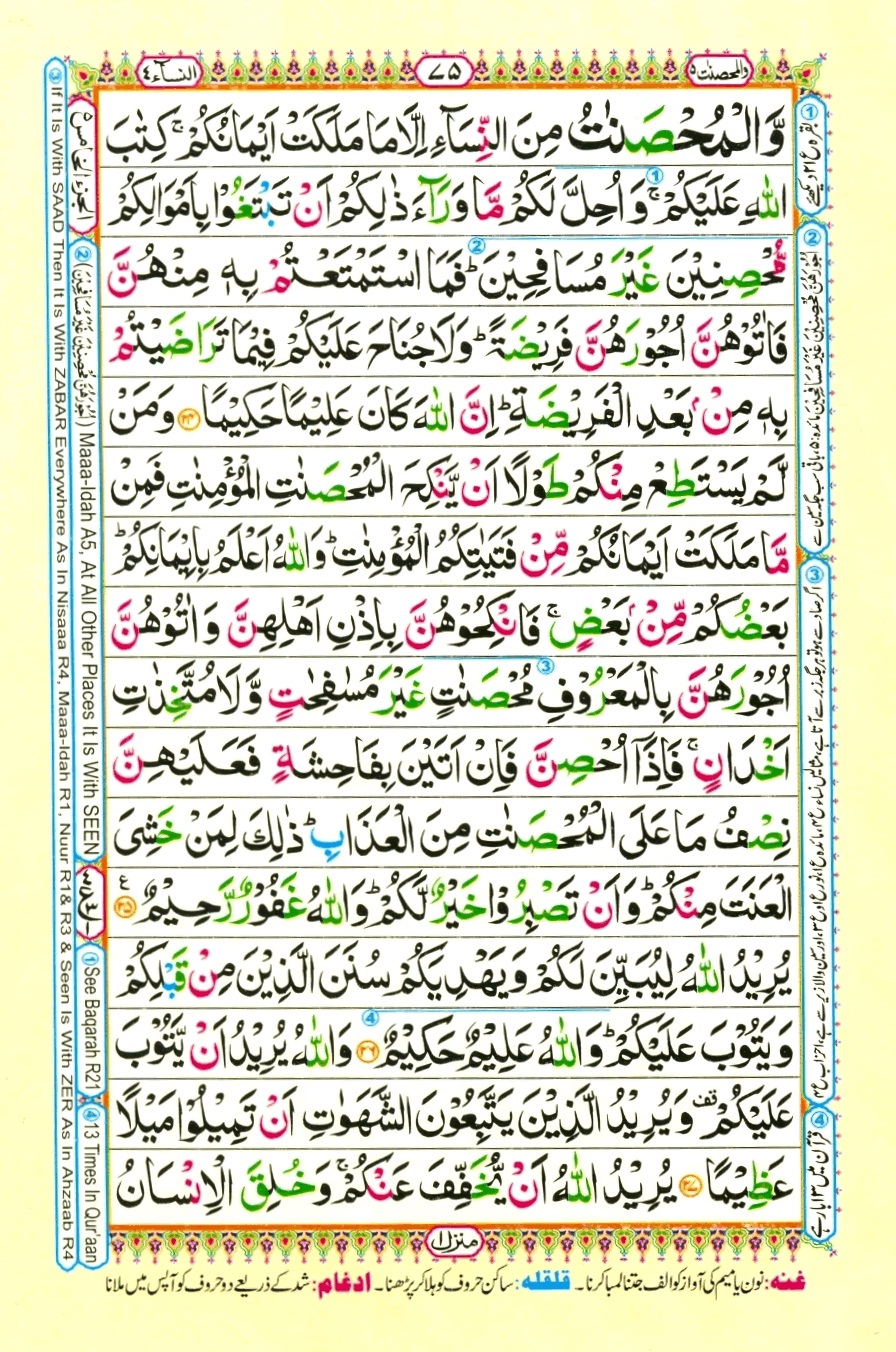 والمحصنت ۵
۷۵
النسآء ۴
وَّالْمُحْصَنٰتُ مِنَ النِّسَآءِ اِلَّا مَا مَلَكَتْ اَيْمَانُكُمْ ۚ كِتٰبَ
اللّٰهِ عَلَيْكُمْ ۚ وَاُحِلَّ لَكُمْ مَّا وَرَآءَ ذٰلِكُمْ اَنْ تَبْتَغُوْا بِاَمْوَالِكُمْ
مُّحْصِنِيْنَ غَيْرَ مُسَافِحِيْنَ ؕ فَمَا اسْتَمْتَعْتُمْ بِهٖ مِنْهُنَّ
فَاٰتُوْهُنَّ اُجُوْرَهُنَّ فَرِيْضَةً ؕ وَلَا جُنَاحَ عَلَيْكُمْ فِيْمَا تَرَاضَيْتُمْ
بِهٖ مِنْۢ بَعْدِ الْفَرِيْضَةِ ؕ اِنَّ اللّٰهَ كَانَ عَلِيْمًا حَكِيْمًا ۲۴ وَمَنْ
لَّمْ يَسْتَطِعْ مِنْكُمْ طَوْلًا اَنْ يَّنْكِحَ الْمُحْصَنٰتِ الْمُؤْمِنٰتِ فَمِنْ
مَّا مَلَكَتْ اَيْمَانُكُمْ مِّنْ فَتَيٰتِكُمُ الْمُؤْمِنٰتِ ؕ وَاللّٰهُ اَعْلَمُ بِاِيْمَانِكُمْ ؕ
بَعْضُكُمْ مِّنْۢ بَعْضٍ ۚ فَانْكِحُوْهُنَّ بِاِذْنِ اَهْلِهِنَّ وَاٰتُوْهُنَّ
اُجُوْرَهُنَّ بِالْمَعْرُوْفِ مُحْصَنٰتٍ غَيْرَ مُسٰفِحٰتٍ وَّلَا مُتَّخِذٰتِ
اَخْدَانٍ ۚ فَاِذَآ اُحْصِنَّ فَاِنْ اَتَيْنَ بِفَاحِشَةٍ فَعَلَيْهِنَّ
نِصْفُ مَا عَلَى الْمُحْصَنٰتِ مِنَ الْعَذَابِ ؕ ذٰلِكَ لِمَنْ خَشِيَ
الْعَنَتَ مِنْكُمْ ؕ وَاَنْ تَصْبِرُوْا خَيْرٌ لَّكُمْ ؕ وَاللّٰهُ غَفُوْرٌ رَّحِيْمٌ ۲۵ ع
يُرِيْدُ اللّٰهُ لِيُبَيِّنَ لَكُمْ وَيَهْدِيَكُمْ سُنَنَ الَّذِيْنَ مِنْ قَبْلِكُمْ
وَيَتُوْبَ عَلَيْكُمْ ؕ وَاللّٰهُ عَلِيْمٌ حَكِيْمٌ ۲۶ وَاللّٰهُ يُرِيْدُ اَنْ يَّتُوْبَ
عَلَيْكُمْ ۟ وَيُرِيْدُ الَّذِيْنَ يَتَّبِعُوْنَ الشَّهَوٰتِ اَنْ تَمِيْلُوْا مَيْلًا
عَظِيْمًا ۲۷ يُرِيْدُ اللّٰهُ اَنْ يُّخَفِّفَ عَنْكُمْ ۚ وَخُلِقَ الْاِنْسَانُ
منزل ۱
غنه: نون یا میم کی آواز کو الف جتنا لمبا کرنا ۔ قلقله: ساکن حروف کو ہلا کر پڑھنا ۔ ادغام: شد کے ذریعے دو حروف کو آپس میں ملانا
① بقرہ ع ۲۱ دیکھئے
④ قرآن میں ۱۳ بار ہے
الجزء الخامس ۵
② (اُجُوْرَهُنَّ مُحْصِنِيْنَ غَيْرَ مُسَافِحِيْنَ) Maaa-Idah A5, At All Other Places It Is With SEEN
① See Baqarah R21
④ 13 Times In Qur'aan
③ If It Is With SAAD Then It Is With ZABAR Everywhere As In Nisaaa R4, Maaa-Idah R1, Nuur R1& R3 & Seen Is With ZER As In Ahzaab R4